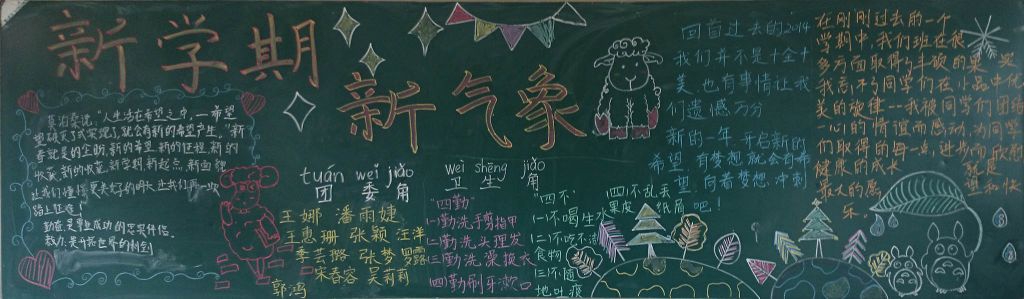 新学期
新气象
莫泊桑说:"人生活在希望之中,一个希望
破灭了或实现了,就会有新的希望产生。"新
春就是的企盼,新的希望,新的征程,新的
收获,新的收获。新学期,新起点,新面貌
让我们憧憬更美好的明天,让我们再一次
踏上征途!
勤奋是事业成功的忠实伴侣。
tuán wěi jiǎo
团委角
王娜 潘雨婕
王惠珊 张颖 汪洋
李芸璐 张梦露
宋春容 吴莉莉
郭鸿
wèi shēng jiǎo
卫生角
"四勤"
(一)勤洗手剪指甲
(二)勤洗头理发
(三)勤洗澡换衣
(四)勤刷牙漱口
"四不"
(一)不喝生水
(二)不吃不洁
食物
(三)不随
地吐痰
(四)不乱丢
果皮纸屑
回首过去的2014
我们并不是十全十
美,也有事情让我
们遗憾万分
新的一年 开启新的
希望,有梦想就会有希
望,向着梦想冲刺
吧!
在刚刚过去的一个
学期中,我们班在很
多方面取得了丰硕的果实
我高不的同学们在小品中优
美的旋律--我被同学们团结
一心的情谊而感动,为同学
们取得的每一点进步而欣慰
健康的成长就是
最大的愿望和快
乐。